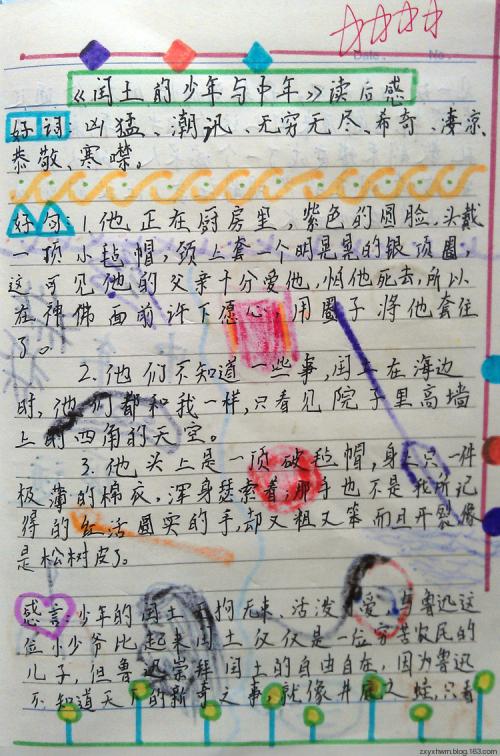 Date. No.
《闰土的少年与中年》读后感
好词:凶猛、潮汛、无穷无尽、希奇、凄凉、
恭敬、寒噤。
好句:1.他正在厨房里,紫色的圆脸,头戴
一顶小毡帽,颈上套一个明晃晃的银项圈,
这可见他的父亲十分爱他,怕他死去,所以
在神佛面前许下愿心,用圈子将他套住
了。
2.他们不知道一些事,闰土在海边
时,他们都和我一样,只看见院子里高墙
上的四角的天空。
3.他头上是一顶破毡帽,身上只一件
极薄的棉衣,浑身瑟索着;那手也不是我所记
得的红活圆实的手,却又粗又笨而且开裂,像
是松树皮了。
感言:少年的闰土无拘无束、活泼可爱,与鲁迅这
位小少爷比起来闰土仅仅是一位穷苦农民的
儿子,但鲁迅崇拜闰土的自由自在,因为鲁迅
不知道天下的新奇之事,就像井底之蛙,只看
zxyxhwm.blog.163.com